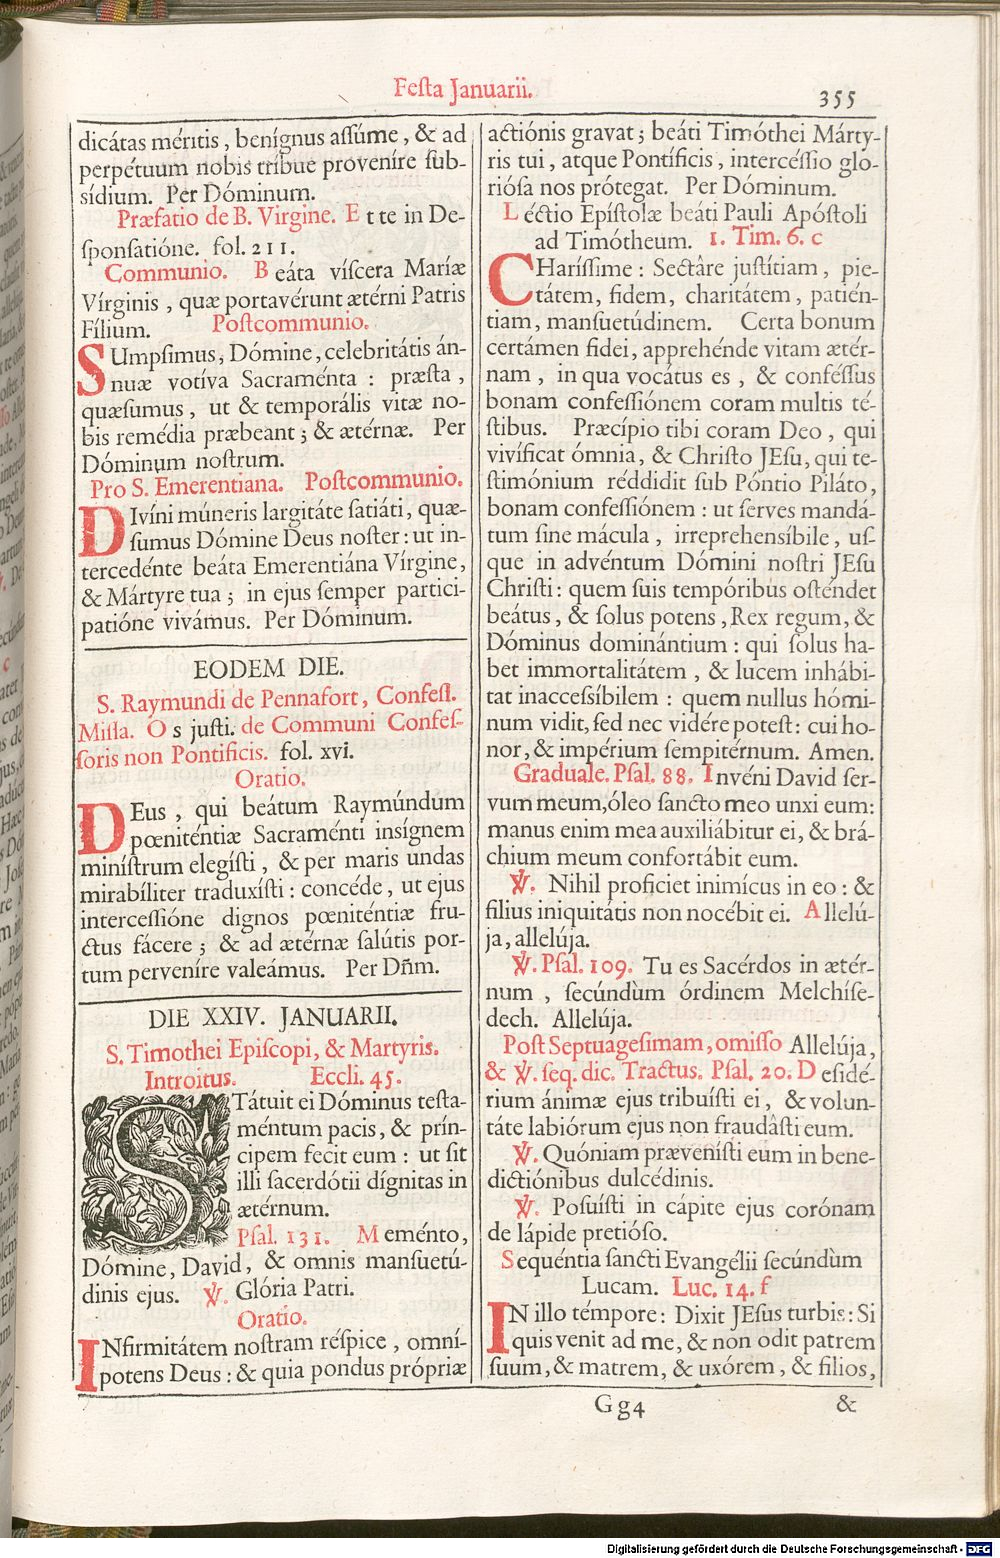 Feſta Januarii.
355
dicátas méritis, benígnus aſſúme, & ad
perpétuum nobis tríbue proveníre ſub-
sídium. Per Dóminum.
Præfatio de B. Virgine. E t te in De-
ſponſatióne. fol. 211.
Communio. B eáta víſcera Maríæ
Vírginis, quæ portavérunt ætérni Patris
Fílium. Poſtcommunio.
SUmpſimus, Dómine, celebritátis án-
nuæ votíva Sacraménta : præſta,
quæſumus, ut & temporális vitæ no-
bis remédia præbeant; & ætérnæ. Per
Dóminum noſtrum.
Pro S. Emerentiana. Poſtcommunio.
DIvíni múneris largitáte ſatiáti, quæ-
ſumus Dómine Deus noſter: ut in-
tercedénte beáta Emerentiána Vírgine,
& Mártyre tua; in ejus ſemper partici-
patióne vivámus. Per Dóminum.
EODEM DIE.
S. Raymundi de Pennafort, Confeſſ.
Miſſa. O s juſti. de Communi Confeſ-
ſoris non Pontificis. fol. xvi.
Oratio.
DEus, qui beátum Raymúndum
pœniténtiæ Sacraménti insignem
miníſtrum elegíſti, & per maris undas
mirabíliter traduxíſti: concéde, ut ejus
interceſſióne dignos pœniténtiæ fru-
ctus fácere; & ad ætérnæ ſalútis por-
tum perveníre valeámus. Per Dn̄m.
DIE XXIV. JANUARII.
S. Timothei Epiſcopi, & Martyris.
Introitus. Eccli. 45.
STátuit ei Dóminus teſta-
méntum pacis, & prín-
cipem fecit eum : ut ſit
illi ſacerdótii dígnitas in
ætérnum.
Pſal. 131. M eménto,
Dómine, David, & omnis manſuetú-
dinis ejus. ℣. Glória Patri.
Oratio.
INfirmitátem noſtram réſpice, omní-
potens Deus : & quia pondus própriæ
actiónis gravat; beáti Timóthei Márty-
ris tui, atque Pontíficis, intercéſſio glo-
rióſa nos prótegat. Per Dóminum.
L éctio Epíſtolæ beáti Pauli Apóſtoli
ad Timótheum. 1. Tim. 6. c
CHaríſſime : Sectâre juſtítiam, pie-
tátem, fidem, charitátem, patién-
tiam, manſuetúdinem. Certa bonum
certámen fidei, apprehénde vitam ætér-
nam, in qua vocátus es, & conféſſus
bonam confeſſiónem coram multis té-
ſtibus. Præcípio tibi coram Deo, qui
vivíficat ómnia, & Chriſto JEſu, qui te-
ſtimónium réddidit ſub Póntio Piláto,
bonam confeſſiónem : ut ſerves mandá-
tum ſine mácula, irreprehensíbile, uſ-
que in advéntum Dómini noſtri JEſu
Chriſti: quem ſuis tempóribus oſténdet
beátus, & ſolus potens, Rex regum, &
Dóminus dominántium : qui ſolus ha-
bet immortalitátem, & lucem inhábi-
tat inacceſsíbilem : quem nullus hómi-
num vidit, ſed nec vidére poteſt: cui ho-
nor, & impérium ſempitérnum. Amen.
Graduale. Pſal. 88. I nvéni David ſer-
vum meum, óleo ſancto meo unxi eum:
manus enim mea auxiliábitur ei, & brá-
chium meum confortábit eum.
℣. Nihil proficiet inimícus in eo : &
filius iniquitátis non nocébit ei. A llelú-
ja, allelúja.
℣. Pſal. 109. Tu es Sacérdos in ætér-
num, ſecúndùm órdinem Melchíſe-
dech. Allelúja.
Poſt Septuageſimam, omiſſo Allelúja,
& ℣. ſeq. dic. Tractus. Pſal. 20. D eſidé-
rium ánimæ ejus tribuíſti ei, & volun-
táte labiórum ejus non fraudâſti eum.
℣. Quóniam præveníſti eum in bene-
dictiónibus dulcédinis.
℣. Poſuíſti in cápite ejus corónam
de lápide pretióſo.
S equéntia ſancti Evangélii ſecúndùm
Lucam. Luc. 14. f
IN illo témpore : Dixit JEſus turbis : Si
quis venit ad me, & non odit patrem
ſuum, & matrem, & uxórem, & filios,
G g4
&
Digitalisierung gefördert durch die Deutsche Forschungsgemeinschaft - DFG